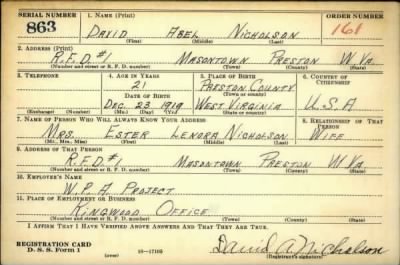 SERIAL NUMBER 1. NAME (Print) ORDER NUMBER
863 DAVID ABEL NICHOLSON 161
(First) (Middle) (Last)
2. ADDRESS (Print)
R.F.D.#1 MASONTOWN PRESTON W.VA.
(Number and street or R. F. D. number) (Town) (County) (State)
3. TELEPHONE 4. AGE IN YEARS 5. PLACE OF BIRTH 6. COUNTRY OF CITIZENSHIP
21 PRESTON COUNTY
DATE OF BIRTH (Town or county)
DEC. 23 1919 WEST VIRGINIA U.S.A
(Exchange) (Number) (Mo.) (Day) (Yr.) (State or country)
7. NAME OF PERSON WHO WILL ALWAYS KNOW YOUR ADDRESS 8. RELATIONSHIP OF THAT PERSON
MRS. ESTER LENORA NICHOLSON WIFE
(Mr., Mrs., Miss) (First) (Middle) (Last)
9. ADDRESS OF THAT PERSON
R.F.D.#1 MASONTOWN PRESTON W.VA.
(Number and street or R. F. D. number) (Town) (County) (State)
10. EMPLOYER'S NAME
W.P.A PROJECT
11. PLACE OF EMPLOYMENT OR BUSINESS
KINGWOOD OFFICE
(Number and street or R. F. D. number) (Town) (County) (State)
I AFFIRM THAT I HAVE VERIFIED ABOVE ANSWERS AND THAT THEY ARE TRUE.
REGISTRATION CARD
D. S. S. Form 1 (over) David A. Nicholson
(Registrant's signature)